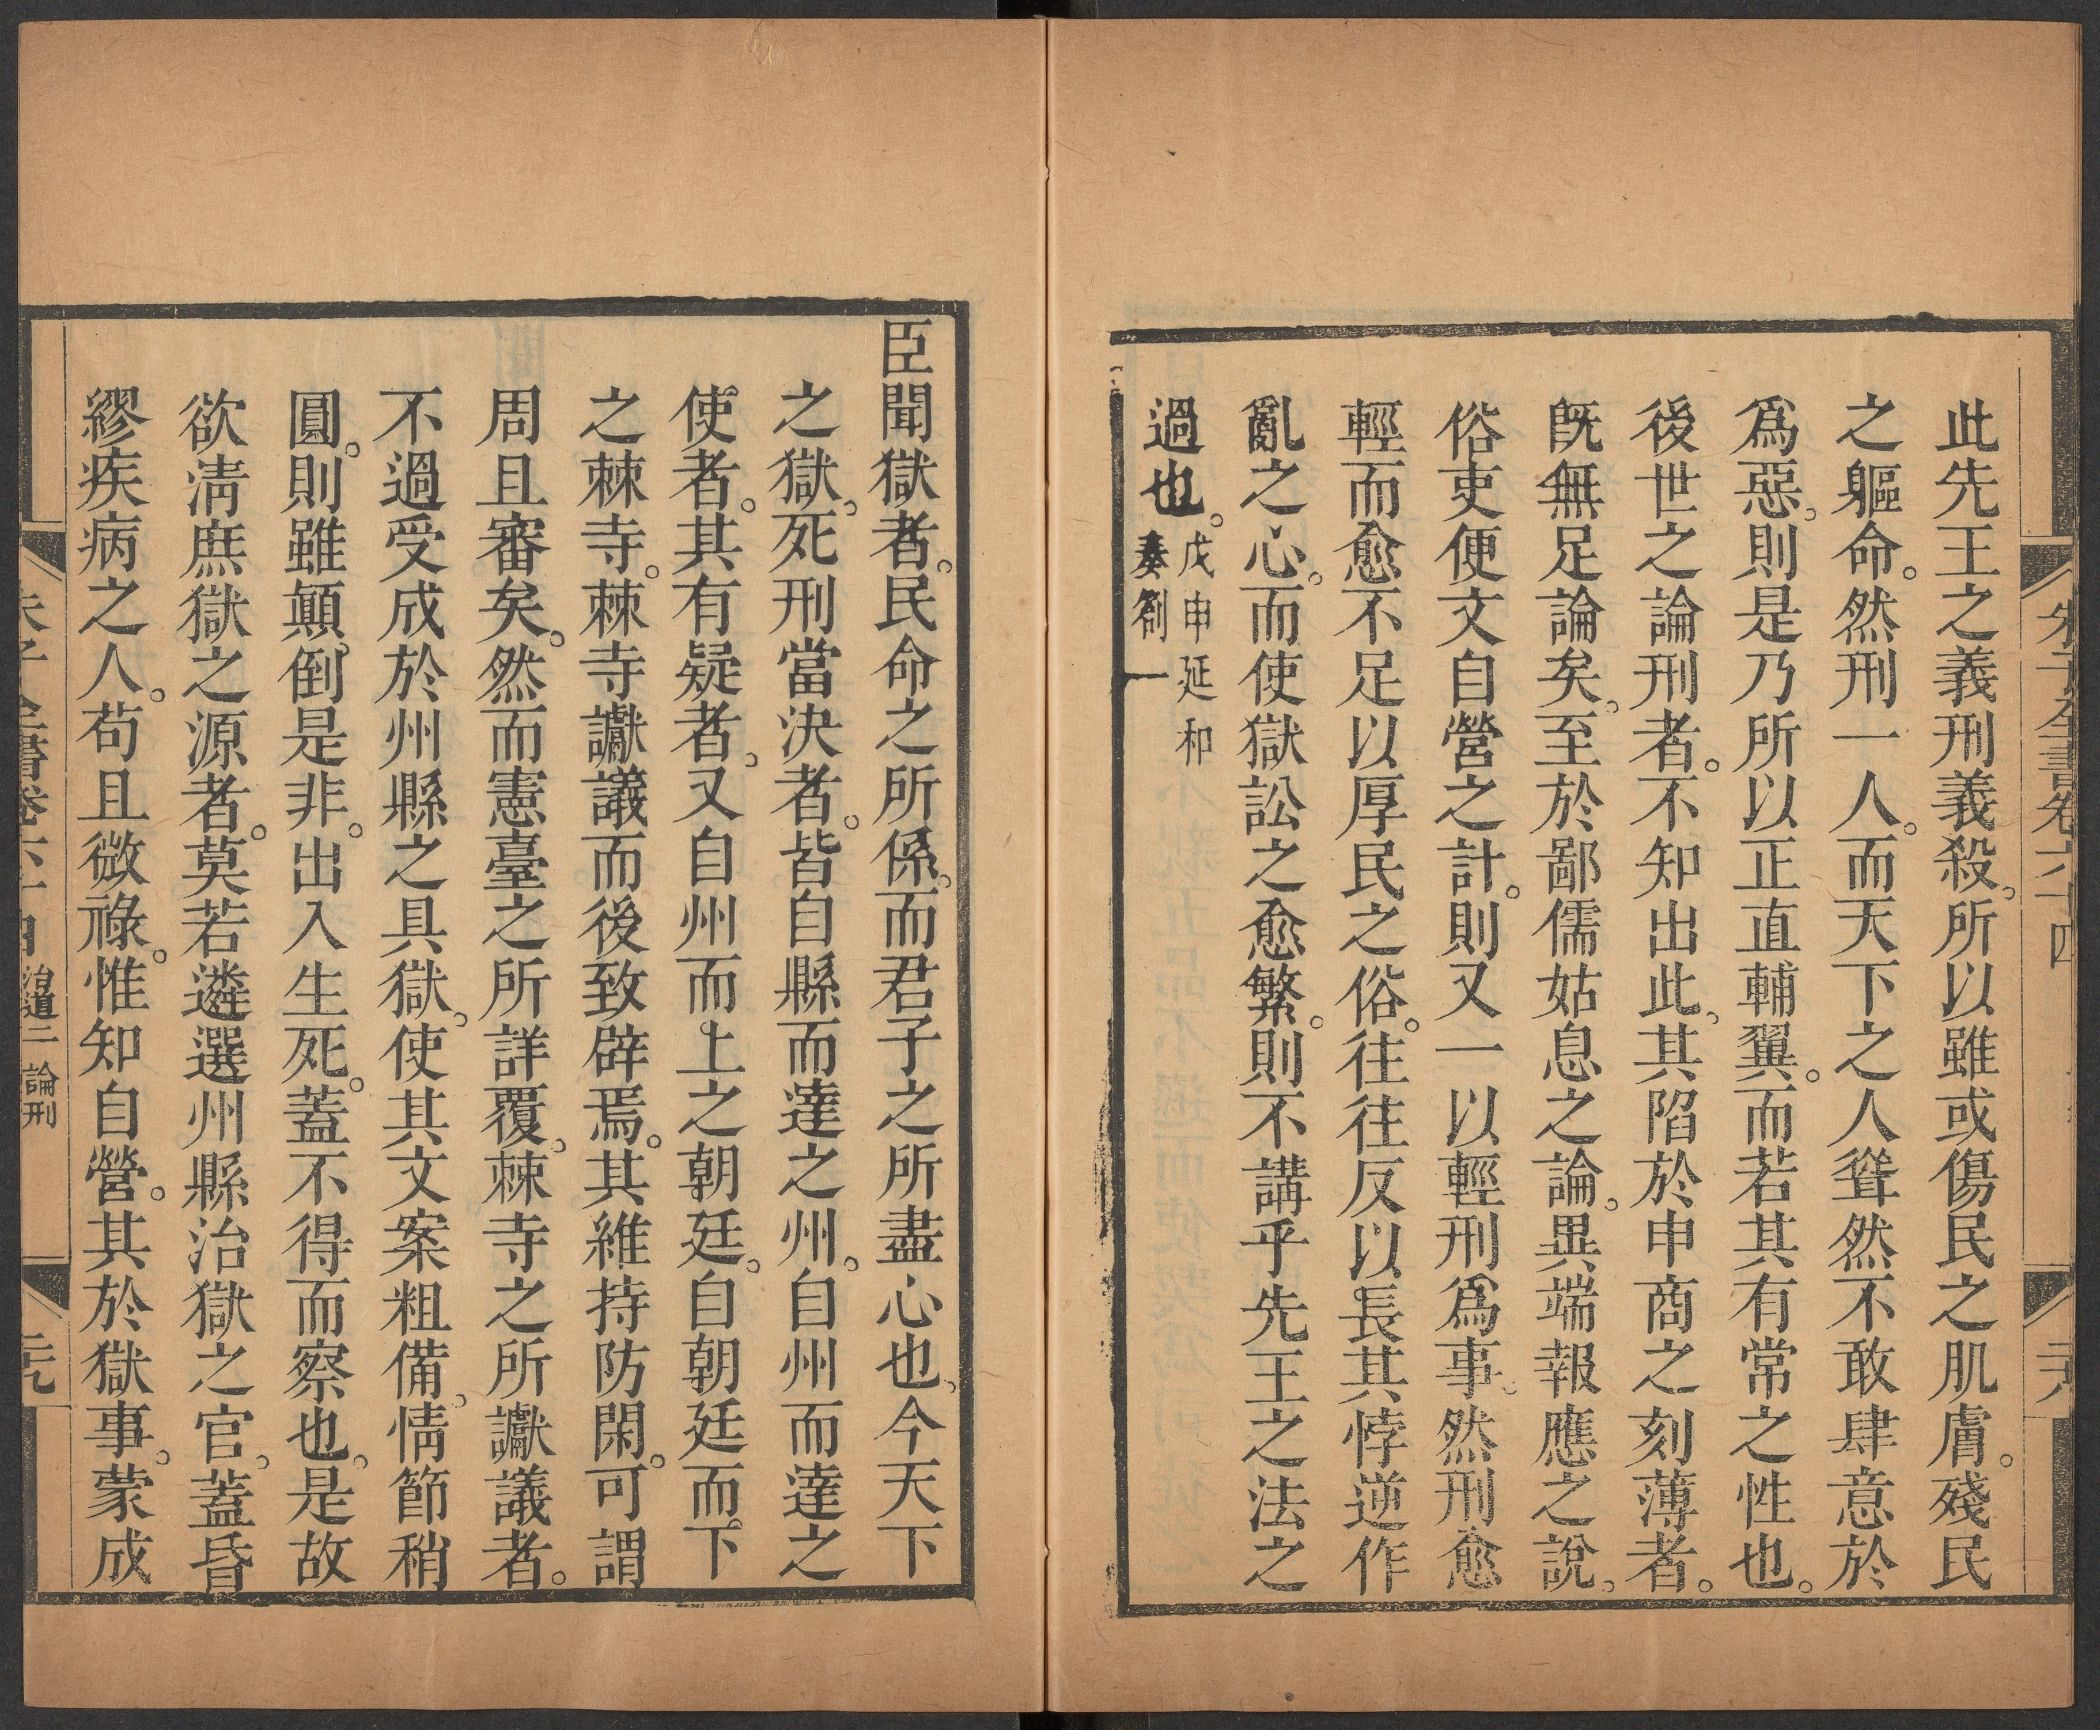 朱子全書卷六十四
此先王之義刑義殺。所以雖或傷民之肌膚。殘民
之軀命。然刑一人。而天下之人聳然不敢肆意於
爲惡。則是乃所以正直輔翼。而若其有常之性也。
後世之論刑者。不知出此。其陷於申商之刻薄者。
旣無足論矣。至於鄙儒姑息之論。異端報應之說。
俗吏便文自營之計。則又一以輕刑爲事。然刑愈
輕而愈不足以厚民之俗。往往反以長其悖逆作
亂之心。而使獄訟之愈繁。則不講乎先王之法之
過也。戊申延和
奏劄一
臣聞獄者。民命之所係。而君子之所盡心也。今天下
之獄。死刑當決者。皆自縣而達之州。自州而達之
使者。其有疑者。又自州而上之朝廷。自朝廷而下
之棘寺。棘寺讞議而後致辟焉。其維持防閑。可謂
周且審矣。然而憲臺之所詳覆。棘寺之所讞議者。
不過受成於州縣之具獄。使其文案粗備。情節稍
圓。則雖顛倒是非。出入生死。蓋不得而察也。是故
欲清庶獄之源者。莫若遴選州縣治獄之官。蓋昏
繆疾病之人。苟且微祿。惟知自營。其於獄事。蒙成
朱子全書卷六十四 治道二 論刑